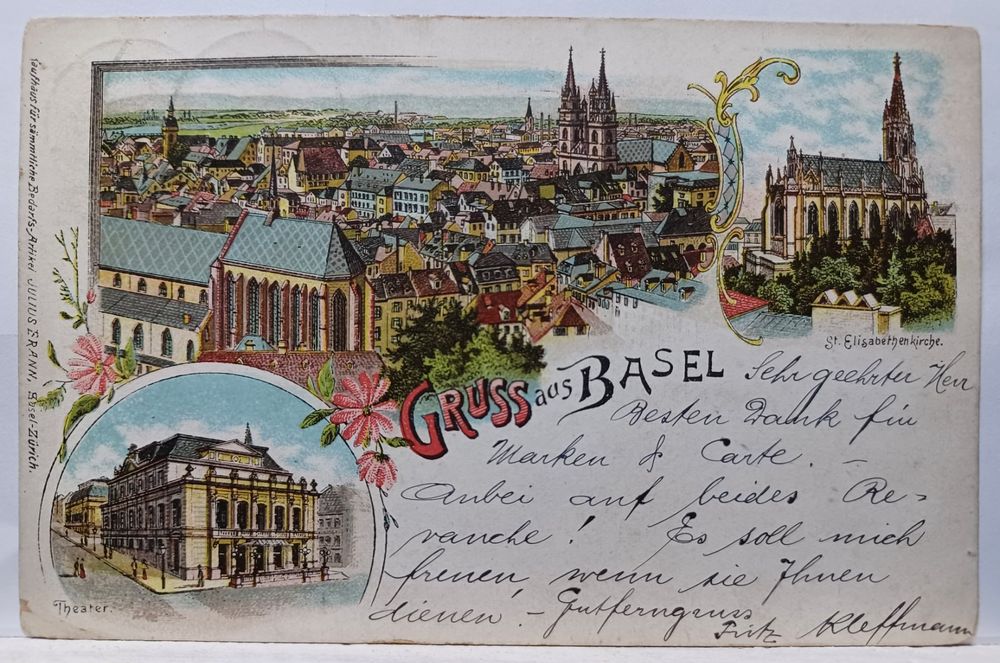 Kaufhaus für sämmtliche Bedarfs-Artikel JULIUS ERANN, Basel-Zürich.
St. Elisabethenkirche.
GRUSS aus BASEL
Theater.
Sehr geehrter Herr
Besten Dank für
Marken & Carte. –
Anbei auf beides Re-
vanche! Es soll mich
freuen, wenn sie Ihnen
dienen. – Gutferngruss
Fritz Kleffmann